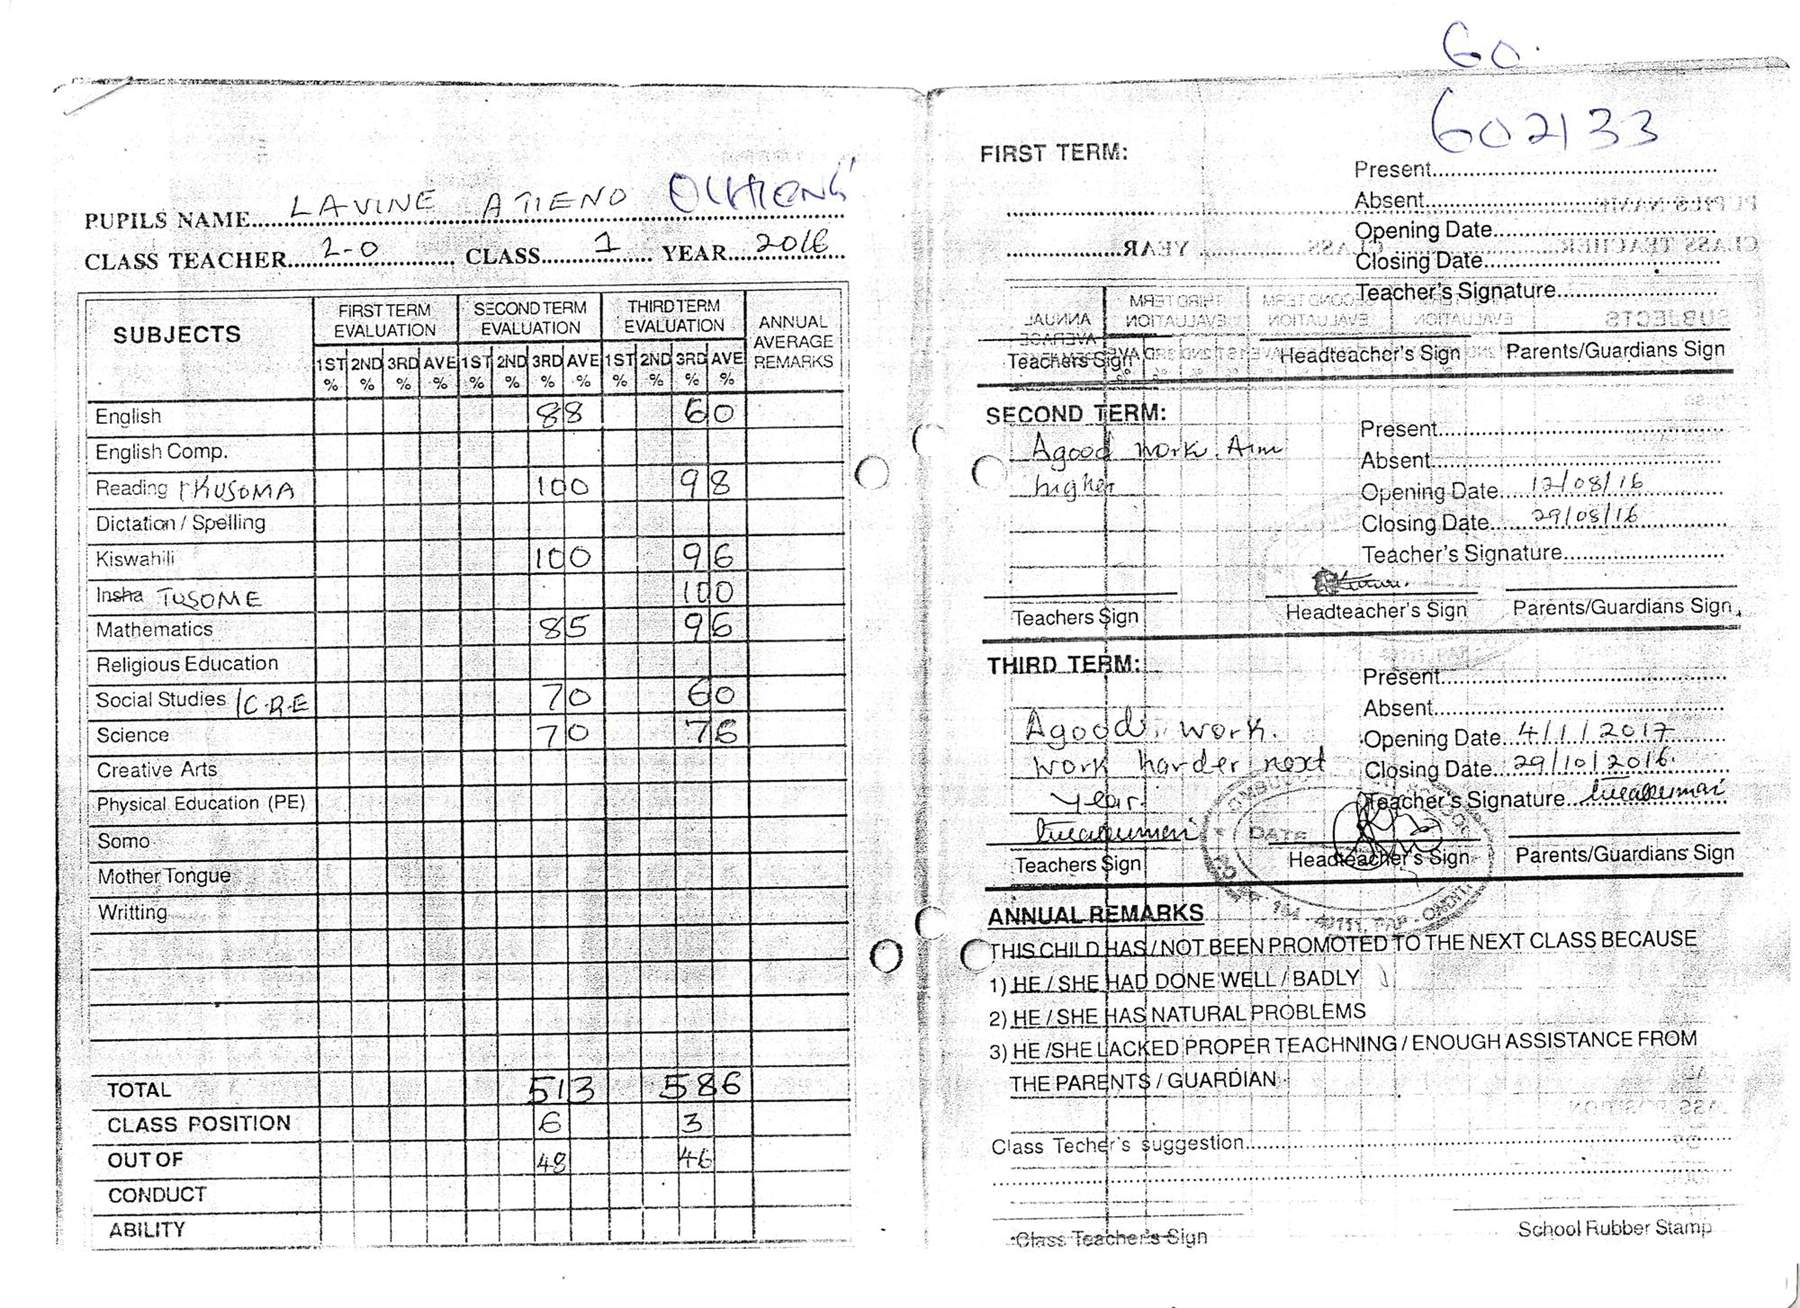 60.
602133
PUPILS NAME.....LAVINE ATIENO OCHIENG'
CLASS TEACHER.....1-0..... CLASS.....1..... YEAR.....2016
SUBJECTS FIRST TERM EVALUATION SECOND TERM EVALUATION THIRD TERM EVALUATION ANNUAL AVERAGE REMARKS
1ST % 2ND % 3RD % AVE % 1ST % 2ND % 3RD % AVE % 1ST % 2ND % 3RD % AVE %
English 88 60
English Comp.
Reading /KUSOMA 100 98
Dictation / Spelling
Kiswahili 100 96
Insha TUSOME 100
Mathematics 85 96
Religious Education
Social Studies /C.R.E 70 60
Science 70 76
Creative Arts
Physical Education (PE)
Somo
Mother Tongue
Writting
TOTAL 513 586
CLASS POSITION 6 3
OUT OF 48 46
CONDUCT
ABILITY
FIRST TERM:
Present
Absent
Opening Date
Closing Date
Teacher's Signature
Teachers Sign Headteacher's Sign Parents/Guardians Sign
SECOND TERM:
Agood work. Aim
higher
Present
Absent
Opening Date 12/08/16
Closing Date 29/08/16
Teacher's Signature
Teachers Sign Headteacher's Sign Parents/Guardians Sign
THIRD TERM:
Agood work.
work harder next
year.
Present
Absent
Opening Date 4/1/2017
Closing Date 29/10/2016.
Teacher's Signature
DATE
Teachers Sign Headteacher's Sign Parents/Guardians Sign
ANNUAL REMARKS
THIS CHILD HAS / NOT BEEN PROMOTED TO THE NEXT CLASS BECAUSE
1) HE / SHE HAD DONE WELL / BADLY
2) HE / SHE HAS NATURAL PROBLEMS
3) HE /SHE LACKED PROPER TEACHNING / ENOUGH ASSISTANCE FROM
THE PARENTS / GUARDIAN
Class Techer's suggestion
Class Teacher's Sign School Rubber Stamp